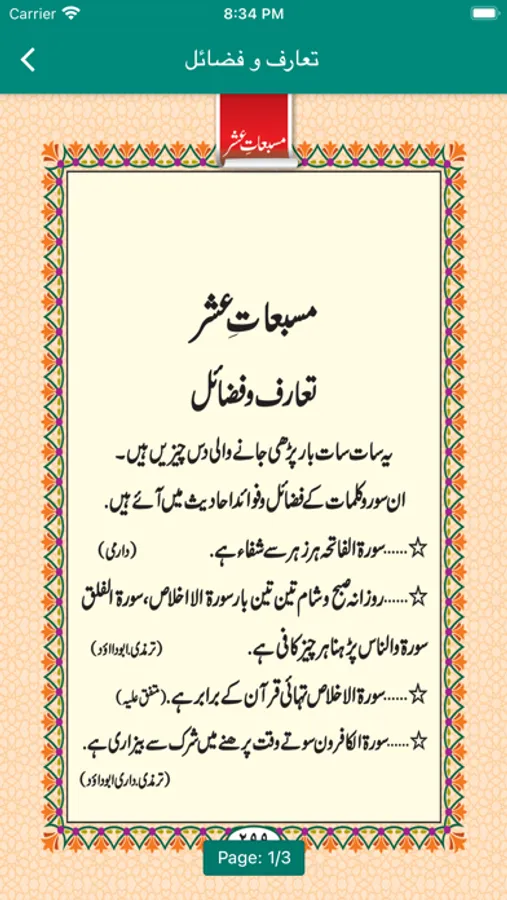 Carrier 8:34 PM
تعارف و فضائل
مسبعاتِ عشر
مسبعاتِ عشر
تعارف و فضائل
یہ سات سات بار پڑھی جانے والی دس چیزیں ہیں۔
ان سور و کلمات کے فضائل و فوائد احادیث میں آئے ہیں.
☆......سورۃ الفاتحہ ہر زہر سے شفاء ہے. (دارمی)
☆......روزانہ صبح و شام تین تین بار سورۃ الاخلاص، سورۃ الفلق
سورۃ والناس پڑہنا ہر چیز کافی ہے. (ترمذی.ابوداؤد)
☆......سورۃ الاخلاص تہائی قرآن کے برابر ہے. (متفق علیہ)
☆......سورۃ الکافرون سوتے وقت پرھنے میں شرک سے بیزاری ہے.
(ترمذی.داری ابوداؤد)
۲۹۹
Page: 1/3